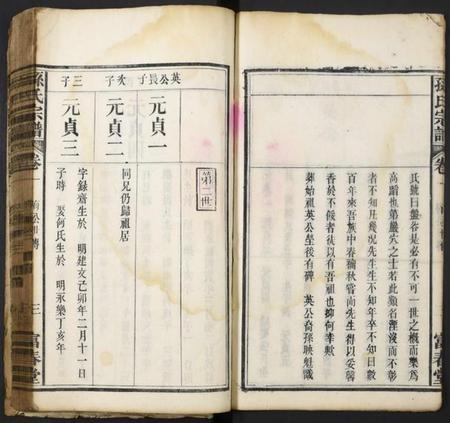 孫氏宗譜
卷一
富春堂
氏號曰盤谷是必有不可一世之概而樂爲
高蹈也第嚴穴之士若此類名湮沒而不彰
者不知凡幾况先生生不知年卒不知日數
百年來吾族中春禴秋嘗尚先生得以妥馨
香於不倏者徒以有吾祖也抑何幸歟
葬始祖英公塋後有碑 英公裔孫映魁識
第二世
英公長子
元貞一
次子
元貞二
同兄仍歸祖居
三子
元貞三
字錄齋生於 明建文己卯年二月十一日
子時 娶何氏生於 明永樂丁亥年
孫氏宗譜
卷一
三
富春堂